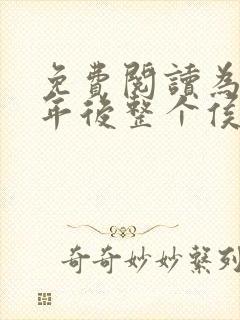 免費閱讀為
年後整个侯
奇奇妙妙繫列